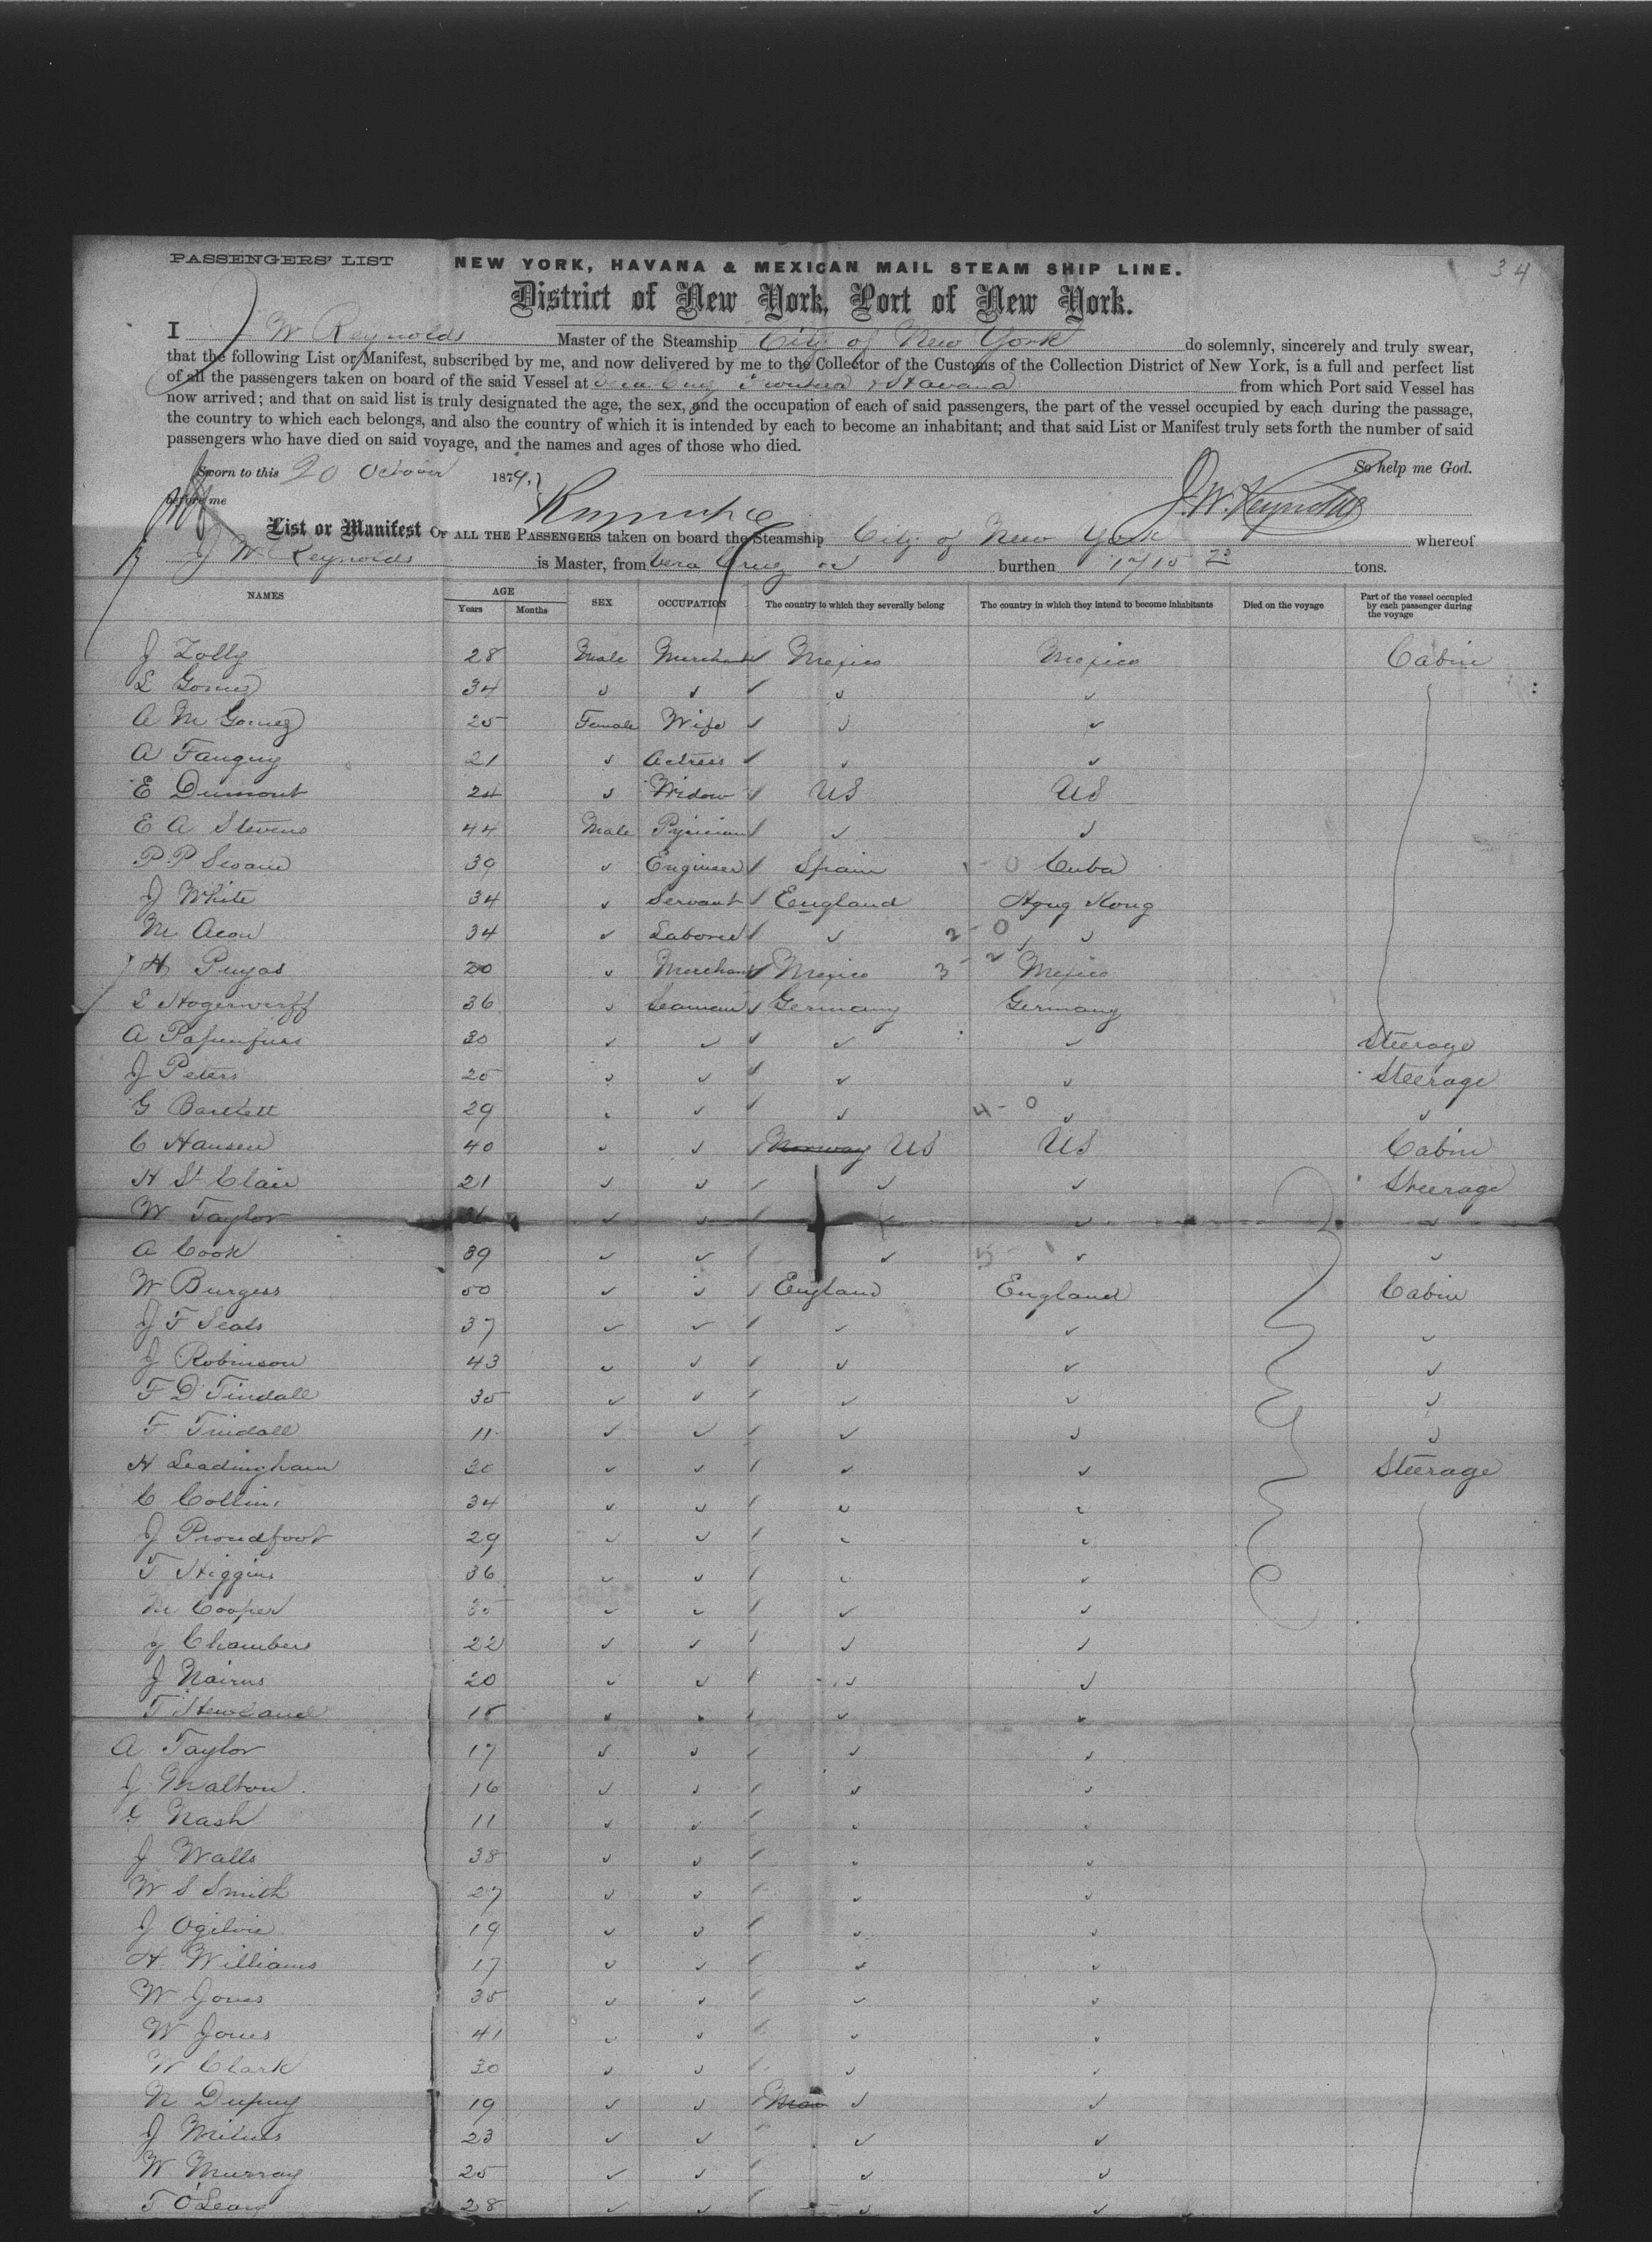 34
PASSENGERS' LIST
NEW YORK, HAVANA & MEXICAN MAIL STEAM SHIP LINE.
District of New York, Port of New York.
I J W Reynolds Master of the Steamship City of New York do solemnly, sincerely and truly swear,
that the following List or Manifest, subscribed by me, and now delivered by me to the Collector of the Customs of the Collection District of New York, is a full and perfect list
of all the passengers taken on board of the said Vessel at Vera Cruz & Havana from which Port said Vessel has
now arrived; and that on said list is truly designated the age, the sex, and the occupation of each of said passengers, the part of the vessel occupied by each during the passage,
the country to which each belongs, and also the country of which it is intended by each to become an inhabitant; and that said List or Manifest truly sets forth the number of said
passengers who have died on said voyage, and the names and ages of those who died.
Sworn to this 20 October 1879, So help me God.
before me J. W. Reynolds
List or Manifest OF ALL THE PASSENGERS taken on board the Steamship City of New York whereof
J W Reynolds is Master, from Vera Cruz burthen 1715 tons.
NAMES AGE Years Months SEX OCCUPATION The country to which they severally belong The country in which they intend to become inhabitants Died on the voyage Part of the vessel occupied by each passenger during the voyage
J Zolly 28 Male Merchant Mexico Mexico Cabin
L Gomez 34
A M Gomez 25 Female Wife
A Fanguy 21 Actress
E Dumont 24 Widow US US
E A Stevens 44 Male
P. P 39 Engineer Spain 1-0 Cuba
J White 34 Servant England Hong Kong
M Acon 34 Laborer 2-0
H Puyas 20 Merchant Mexico 3-2 Mexico
L Hogerwerff 36 Seaman Germany Germany
A Papenfuss 30 Steerage
J Peters 25 Steerage
G Bartlett 29 4-0
C Hansen 40 Norway US US Cabin
H St Clair 21 Steerage
W Taylor
A Cook 39 5-1
W Burgess 50 England England Cabin
J F Seals 37
J Robinson 43
F D Tindall 35
F Tindall 11
H Leadingham 30 Steerage
C Collins 34
J Proudfoot 29
T Higgins 36
M Cooper 35
J Chambers 22
J Nairns 20
T 18
A Taylor 17
J Malton 16
G Nash 11
J Walls 38
W S Smith 27
J Ogilvie 19
H Williams 17
W Jones 35
W Jones 41
W Clark 30
N Dupuy 19
J Milnes 23
W Murray 25
T O'Leary 28